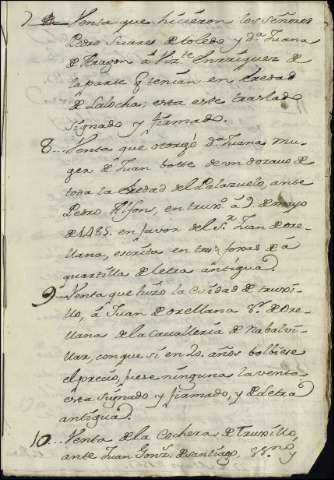 7. Venta que hicieron los señores
Pedro Suares de toledo y dª Juana
de Aragon à Vizte Enrriquez de
la parte q tenian en la edad
de Lalocha; esta este traslado
signado y firmado.
8.. Venta que otorgó dª Juana mu
ger de Juan de un dozavo de
toda la del Palazuelo, ante
Pedro Alfons, en truxº à 9 de mayo
de 1485. en favor del Sr Juan de ore-
llana, escrita en tres foxas de a
quartilla de letra antigua.
9.. Venta que hizo la Ciudad de truxi-
llo, à Juan de orellana Sr. de Ore-
llana de la Cavalleria de Nabalvi-
llar, con que si en 20. años bolbiese
el precio, fuese ninguna la venta
esta signado y firmado, y de letra
antigua.
10.. Venta de la Cochera de Truxillo,
ante Juan Gonz. de Santiago,